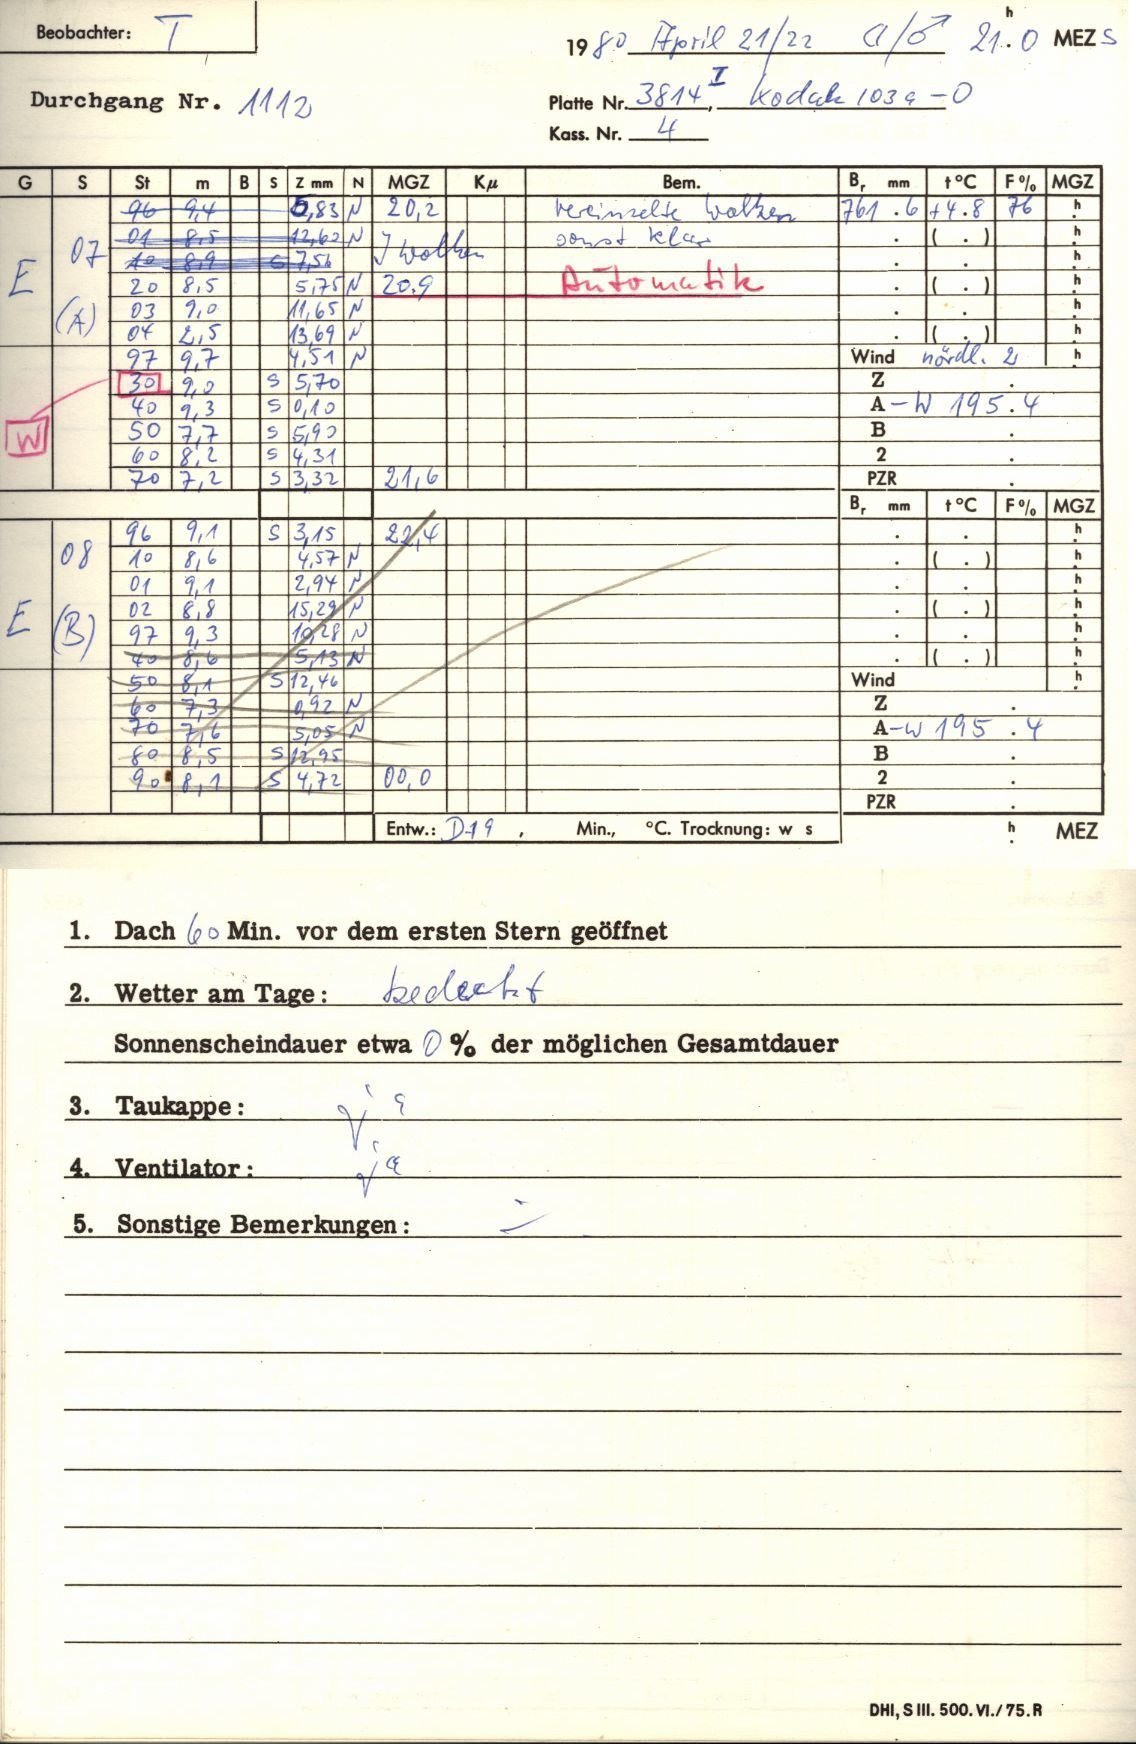 Beobachter: T
1980 April 21/22 21.0 h MEZ S
Durchgang Nr. 1112
Platte Nr. 3814 I, Kodak 103a-O
Kass. Nr. 4
G S St m B S Z mm N MGZ Kμ Bem. Br mm t °C F % MGZ
96 9,4 5,83 N 20,2 vereinzelte Wolken 761.6 +4.8 76 h
E 07 (A)
01 8,5 12,62 N Wolken sonst klar . ( . ) h
10 8,9 S 7,56 . . h
20 8,5 5,75 N 20.9 Automatik . ( . ) h
03 9,0 11,65 N . . h
04 2,5 13,69 N . ( . ) h
97 9,7 4,51 N Wind nördl. 2 h
30 9,0 S 5,70 Z .
W
40 9,3 S 0,10 A-W 195.4
50 7,7 S 5,90 B .
60 8,2 S 4,31 2 .
70 7,2 S 3,32 21,6 PZR .
Br mm t °C F % MGZ
96 9,1 S 3,15 22,4 . . h
E 08 (B)
10 8,6 4,57 N . ( . ) h
01 9,1 2,94 N . . h
02 8,8 15,29 N . ( . ) h
97 9,3 10,28 N . . h
40 8,6 5,13 N . ( . ) h
50 8,1 S 12,46 Wind h
60 7,3 0,92 N Z .
70 7,6 5,05 N A-W 195.4
80 8,5 S 12,95 B .
90 8,1 S 4,72 00,0 2 .
PZR .
Entw.: D-19 , Min., °C. Trocknung: w s h MEZ
1. Dach 60 Min. vor dem ersten Stern geöffnet
2. Wetter am Tage: bedeckt
Sonnenscheindauer etwa 0 % der möglichen Gesamtdauer
3. Taukappe: ja
4. Ventilator: ja
5. Sonstige Bemerkungen: -
DHI, S III. 500. VI./75. R